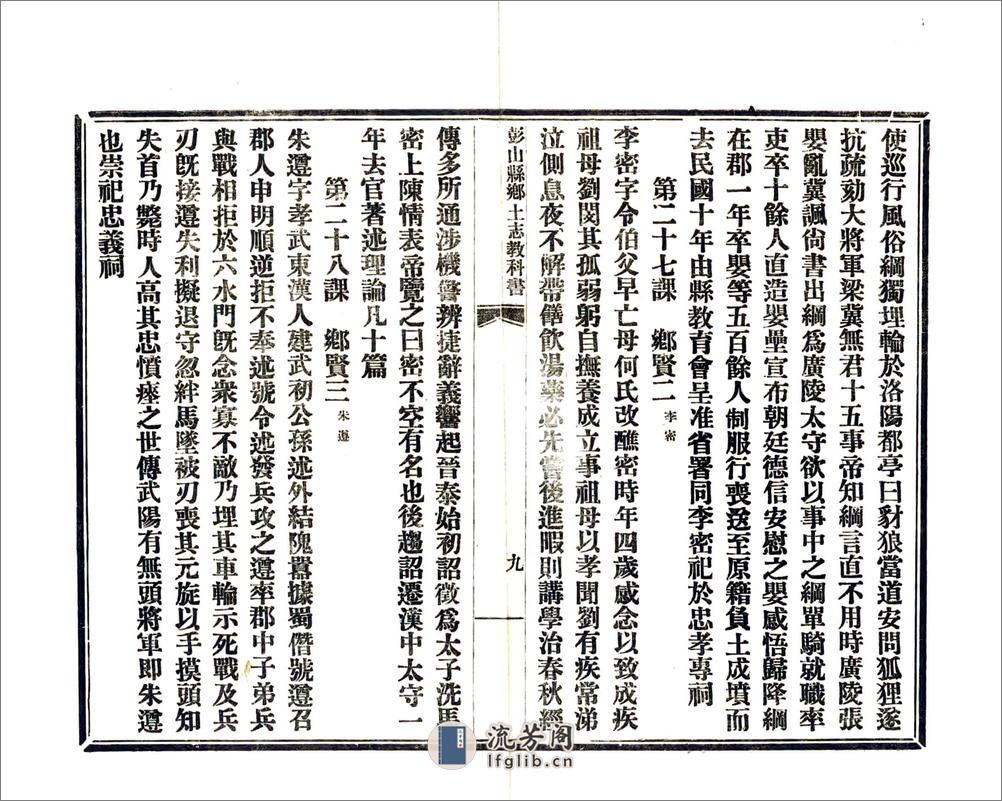 使巡行風俗綱獨埋輪於洛陽都亭曰豺狼當道安問狐狸遂
抗疏劾大將軍梁冀無君十五事帝知綱言直不用時廣陵張
嬰亂冀諷尙書出綱爲廣陵太守欲以事中之綱單騎就職率
吏卒十餘人直造嬰壘宣布朝廷德信安慰之嬰感悟歸降綱
在郡一年卒嬰等五百餘人制服行喪送至原籍負土成墳而
去民國十年由縣教育會呈准省署同李密祀於忠孝專祠
第二十七課 鄉賢二 李密
李密字令伯父早亡母何氏改醮密時年四歲感念以致成疾
祖母劉閔其孤弱躬自撫養成立事祖母以孝聞劉有疾常涕
泣側息夜不解帶饍飲湯藥必先嘗後進暇則講學治春秋經
彭山縣鄉土志教科書 九
傳多所通涉機警辨捷辭義響起晉泰始初詔徵爲太子洗馬
密上陳情表帝覽之曰密不空有名也後趨詔遷漢中太守一
年去官著述理論凡十篇
第二十八課 鄉賢三 朱遵
朱遵字孝武東漢人建武初公孫述外結隗囂據蜀僭號遵召
郡人申明順逆拒不奉述號令述發兵攻之遵率郡中子弟兵
與戰相拒於六水門旣念衆寡不敵乃埋其車輪示死戰及兵
刃旣接遵失利擬退守忽絆馬墜被刃喪其元旋以手摸頭知
失首乃斃時人高其忠憤瘞之世傳武陽有無頭將軍即朱遵
也崇祀忠義祠
流芳阁
lfglib.cn